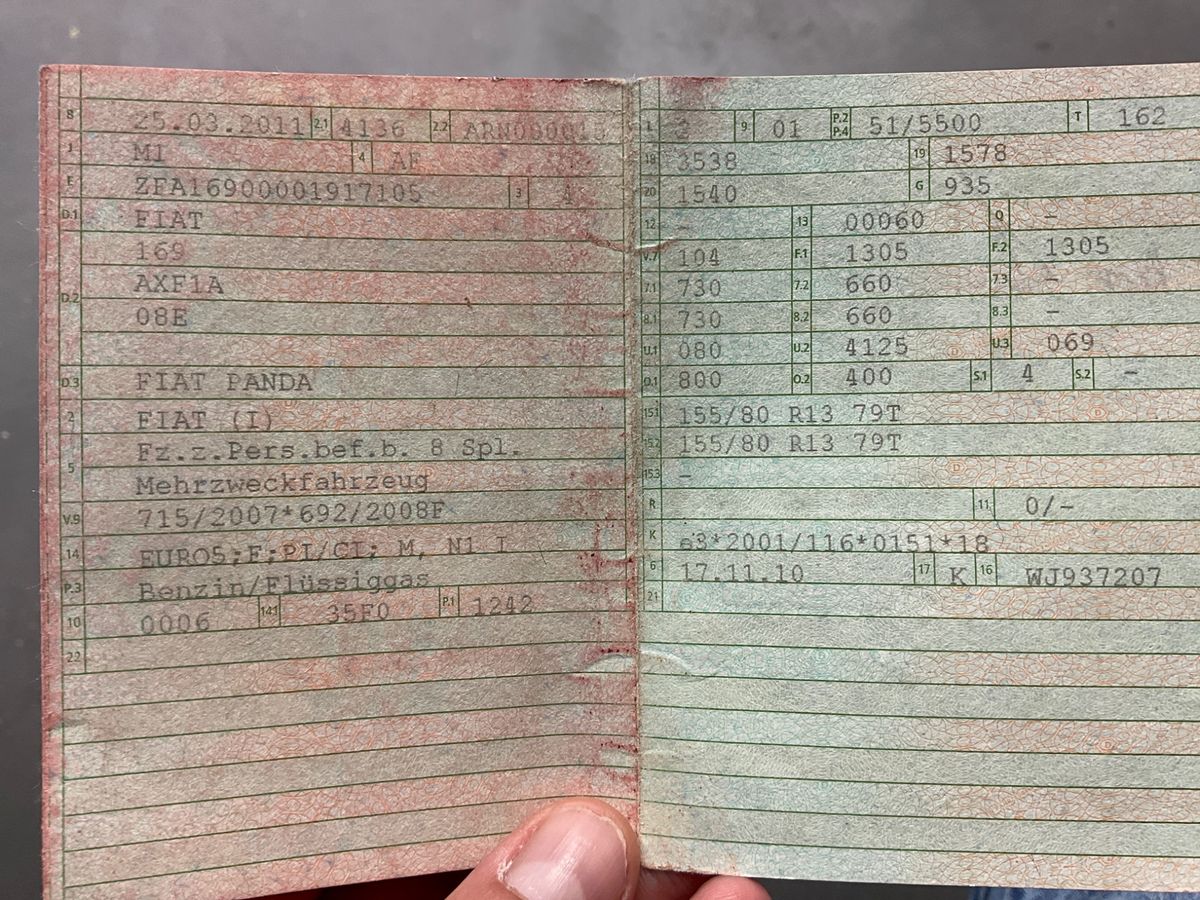 B 25.03.2011 2.1 4136 2.2
J M1 4 AF
E ZFA16900001917105 3 4
D.1 FIAT
169
D.2 AXF1A
08E
D.3 FIAT PANDA
2 FIAT (I)
5 Fz.z.Pers.bef.b. 8 Spl.
Mehrzweckfahrzeug
V.9 715/2007*692/2008F
14 EURO5;F;PI/CI; M, N1 I
P.3 Benzin/Flüssiggas
10 0006 14.1 35F0 P.1 1242
22
L 2 9 01 P.2 P.4 51/5500 T 162
18 3538 19 1578
20 1540 G 935
12 - 13 00060 Q -
V.7 104 F.1 1305 F.2 1305
7.1 730 7.2 660 7.3 -
8.1 730 8.2 660 8.3 -
U.1 080 U.2 4125 U.3 069
O.1 800 O.2 400 S.1 4 S.2 -
15.1 155/80 R13 79T
15.2 155/80 R13 79T
15.3 -
R 11 0/-
K e3*2001/116*0151*18
6 17.11.10 17 K 16 WJ937207
21